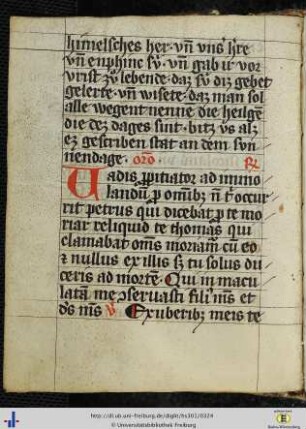 himelsches her. vn̄ vns h're
vn̄ enphinc sÿ. vn̄ gab ir vor
vrist zv̊ lebende. daz sÿ diz gebet
gelerte. vn̄ wisete. daz man sol
alle wegent nenne die heilge
die dez dages sint. bitz vs alz
ez gescriben stat an dem svn
nendage. oro R
Uadis ꝓpitiator ad immo
landū ꝓ om̄ibꝫ n̄ t' occur
rit petrus qui dicebat ꝓ te mo
riar reliquid te thomas qui
clamabat om̄s moriam̄ cū eo
⁊ nullus ex illis sꝫ tu solus du
ceris ad mortē. Qui in macu
latā me ꝯseruasti fili' m̄s et
d's m̄s v Exuberibꝫ meis te
http://dl.ub.uni-freiburg.de/diglit/hs301/0324
© Universitätsbibliothek Freiburg